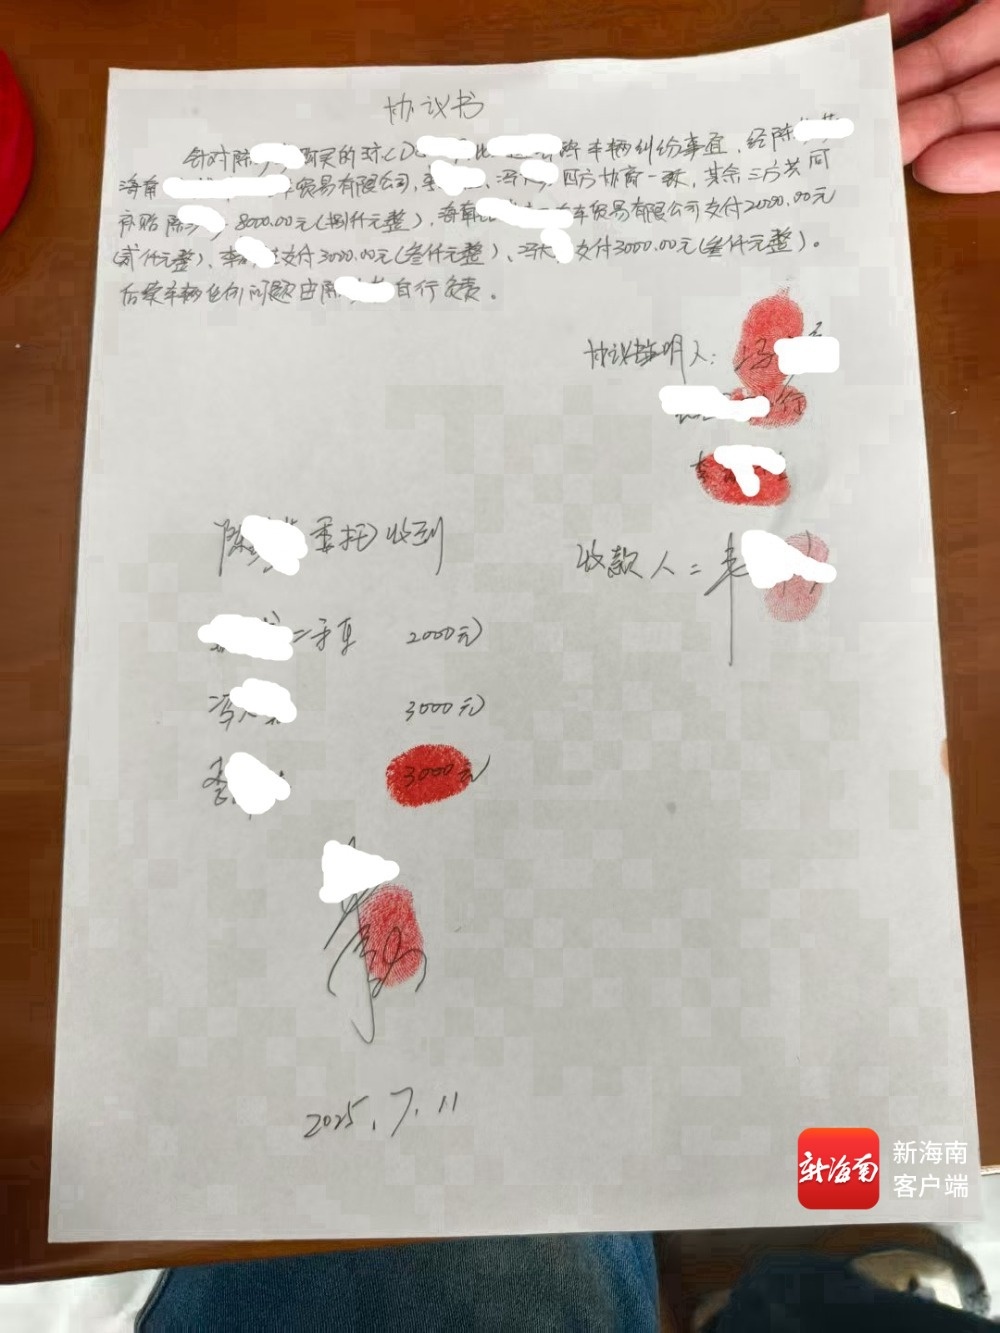 协议书
针对陈 购买的琼CD 车辆纠纷事宜,经陈
海南 贸易有限公司, 冯 四方协商一致,其余三方共同
补贴陈 8000.00元(捌仟元整),海南 车贸易有限公司支付2000.00元
(贰仟元整)、李 支付3000.00元(叁仟元整)、冯 支付3000.00元(叁仟元整)。
后续车辆任何问题由陈 自行负责。
协议 明人: 冯
行
李
陈 委托收到
收款人:
二手车 2000元
冯 3000元
李 3000元
2025.7.11
新海南
新海南
客户端